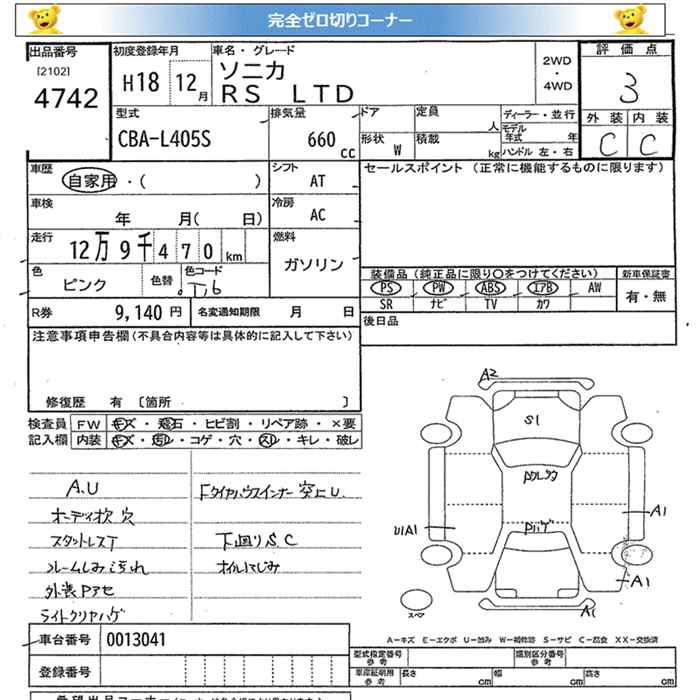 完全ゼロ切りコーナー
出品番号
[2102]
4742
初度登録年月
H18 12月
車名・グレード
ソニカ
RS LTD
2WD
・
4WD
評価点
3
外装 内装
C C
型式
CBA-L405S
排気量
660 cc
ドア
定員
人
形状
W
積載
kg
ディーラー・並行
モデル年式 年
ハンドル 左・右
車歴
自家用・( )
シフト
AT
セールスポイント (正常に機能するものに限ります)
車検
年 月( 日)
冷房
AC
走行
12万9千470km
燃料
ガソリン
色
ピンク
色替
色コード
T16
装備品(純正品に限り○をつけてください)
新車保証書
PS PW ABS エアB AW
SR ナビ TV カワ
有・無
R券
9,140円
名変通知期限 月 日
後日品
注意事項申告欄(不具合内容等は具体的に記入して下さい)
修復歴 有 〔箇所 〕
検査員
記入欄
FW キズ・飛石・ヒビ割・リペア跡・×要
内装 キズ・汚レ・コゲ・穴・スレ・キレ・破レ
A.U
オーディオ欠 穴
スタットレスT
ルームしみ汚れ
外装Pアセ
ライトクリヤハゲ
Fタイヤハウスインナー 突上U.
下廻りS.C
オイルにじみ
A2
S1
Pハゲ
A1
U1A1
A1
A1
スペア
A-キズ E-エクボ U-凹み W-補修跡 S-サビ C-腐食 XX-交換済
車台番号
0013041
登録番号
型式指定番号
参考
類別区分番号
参考
車庫証明用
参考
長さ cm
幅 cm
高さ cm